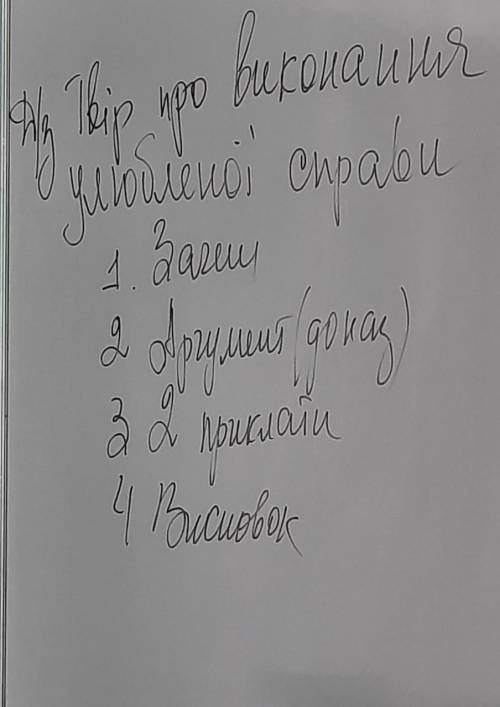 Д/з Твір про виконання
улюбленої справи
1. Зачин
2 Аргумент (доказ)
3 2 приклати
4 Висновок